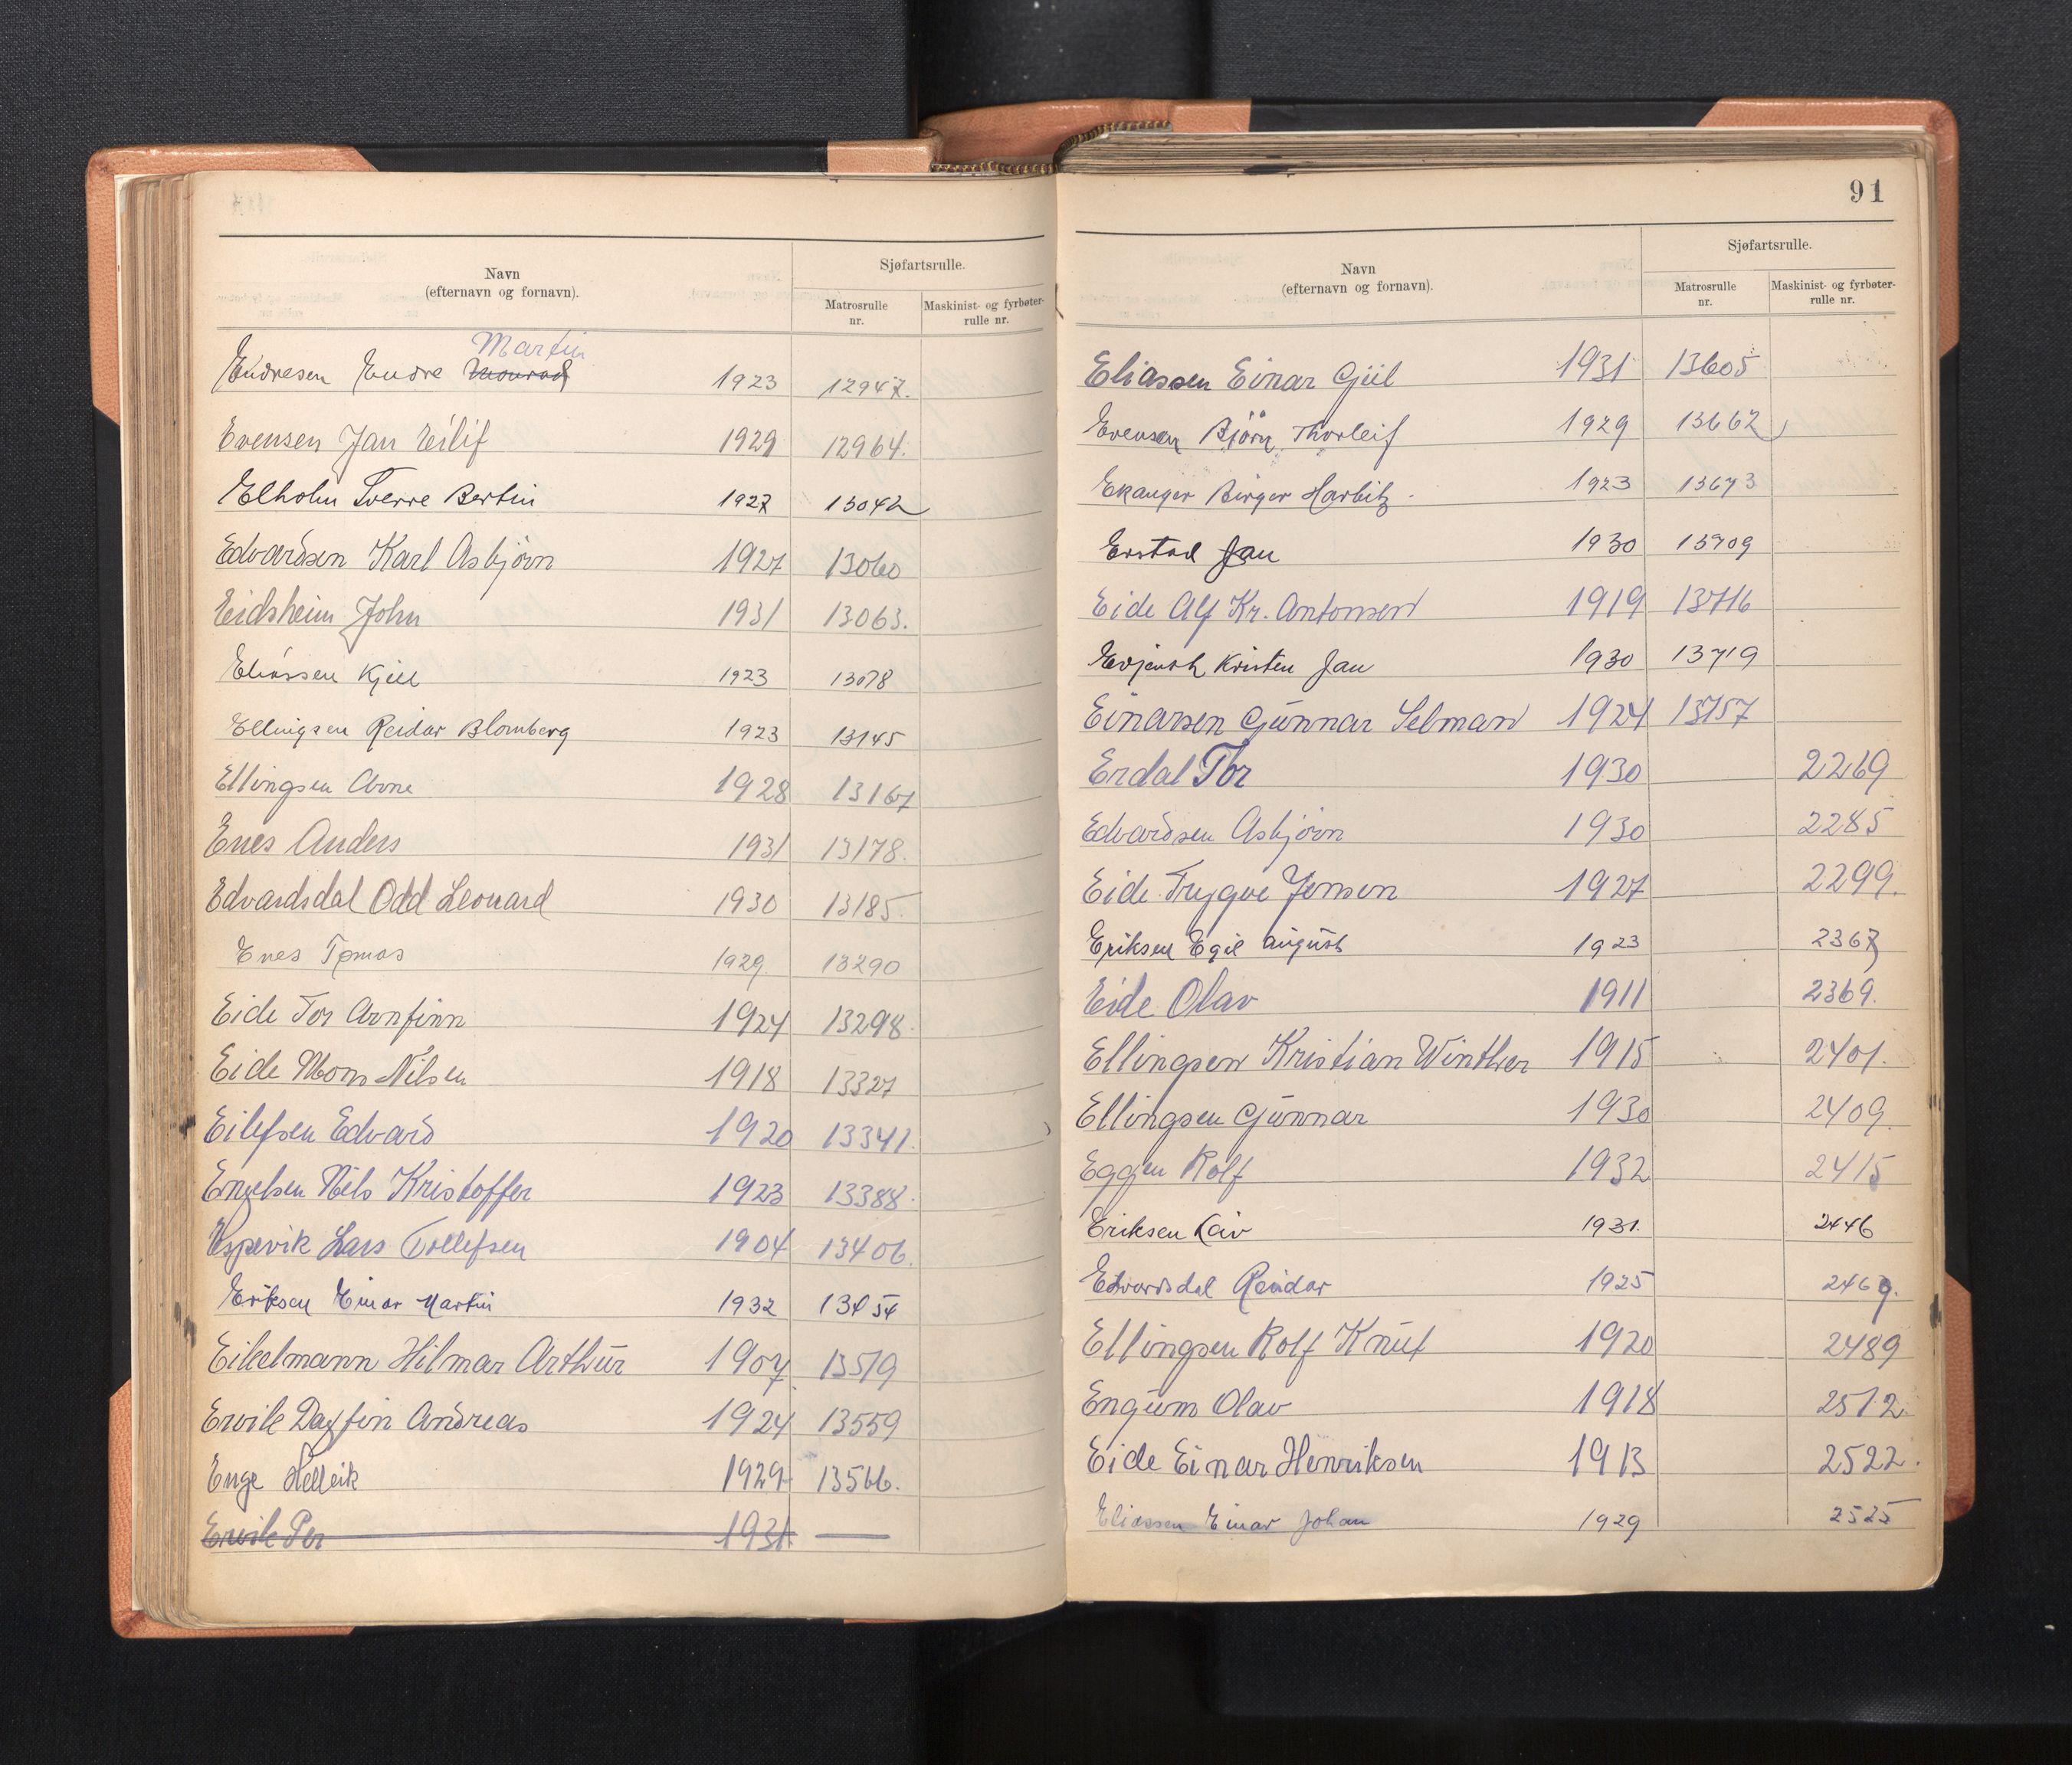 Navn
(efternavn og fornavn).
Sjøfartsrulle.
Matrosrulle
nr.
Maskinist- og fyrbøter-
rulle nr.
Martin
Endresen Endre Monrad 1923 12947.
Evensen Jan Eilif 1929 12964.
Elholm Sverre Bertin 1927 13042
Edvardsen Karl Asbjörn 1927 13060
Eidsheim John 1931 13063.
Eliassen Kjell 1923 13078
Ellingsen Reidar Blomberg 1923 13145
Ellingsen Arne 1928 13167
Enes Anders 1931 13178.
Edvardsdal Odd Leonard 1930 13185.
Enes Tomas 1929 13290
Eide Tor Arnfinn 1924 13298.
Eide Mons Nilsen 1918 13327
Eilefsen Edvard 1920 13341.
Engelsen Nils Kristoffer 1923 13388.
Espevik Lars Tollefsen 1904 13406.
Eriksen Einar Martin 1932 13454
Eikelmann Hilmar Arthur 1907 13519
Ervik Dagfin Andreas 1924 13559
Enge Helleik 1929 13566.
Ervik Per 1931 —
91
Navn
(efternavn og fornavn).
Sjøfartsrulle.
Matrosrulle
nr.
Maskinist- og fyrbøter-
rulle nr.
Eliassen Einar Giil 1931 13605
Evensen Björn Thorleif 1929 13662
Ekanger Birger Harbitz. 1923 13673
Erstad Jan 1930 13709
Eide Alf Kr. Antonsen 1919 13716
Kristen Jan 1930 13719
Einarsen Gunnar Selman 1924 13757
Erdal Tor 1930 2269
Edvardsen Asbjörn 1930 2285
Eide Trygve Jensen 1927 2299.
Eriksen Egil August 1923 2367
Eide Olav 1911 2369.
Ellingsen Kristian Winther 1915 2401.
Ellingsen Gunnar 1930 2409.
Eggen Rolf 1932 2415
Eriksen Leiv 1931. 2446
Edvardsdal Reidar 1925 2469.
Ellingsen Rolf Knut 1920 2489
Engum Olav 1918 2512.
Eide Einar Henriksen 1913 2522.
Eliassen Einar Johan 1929 2525